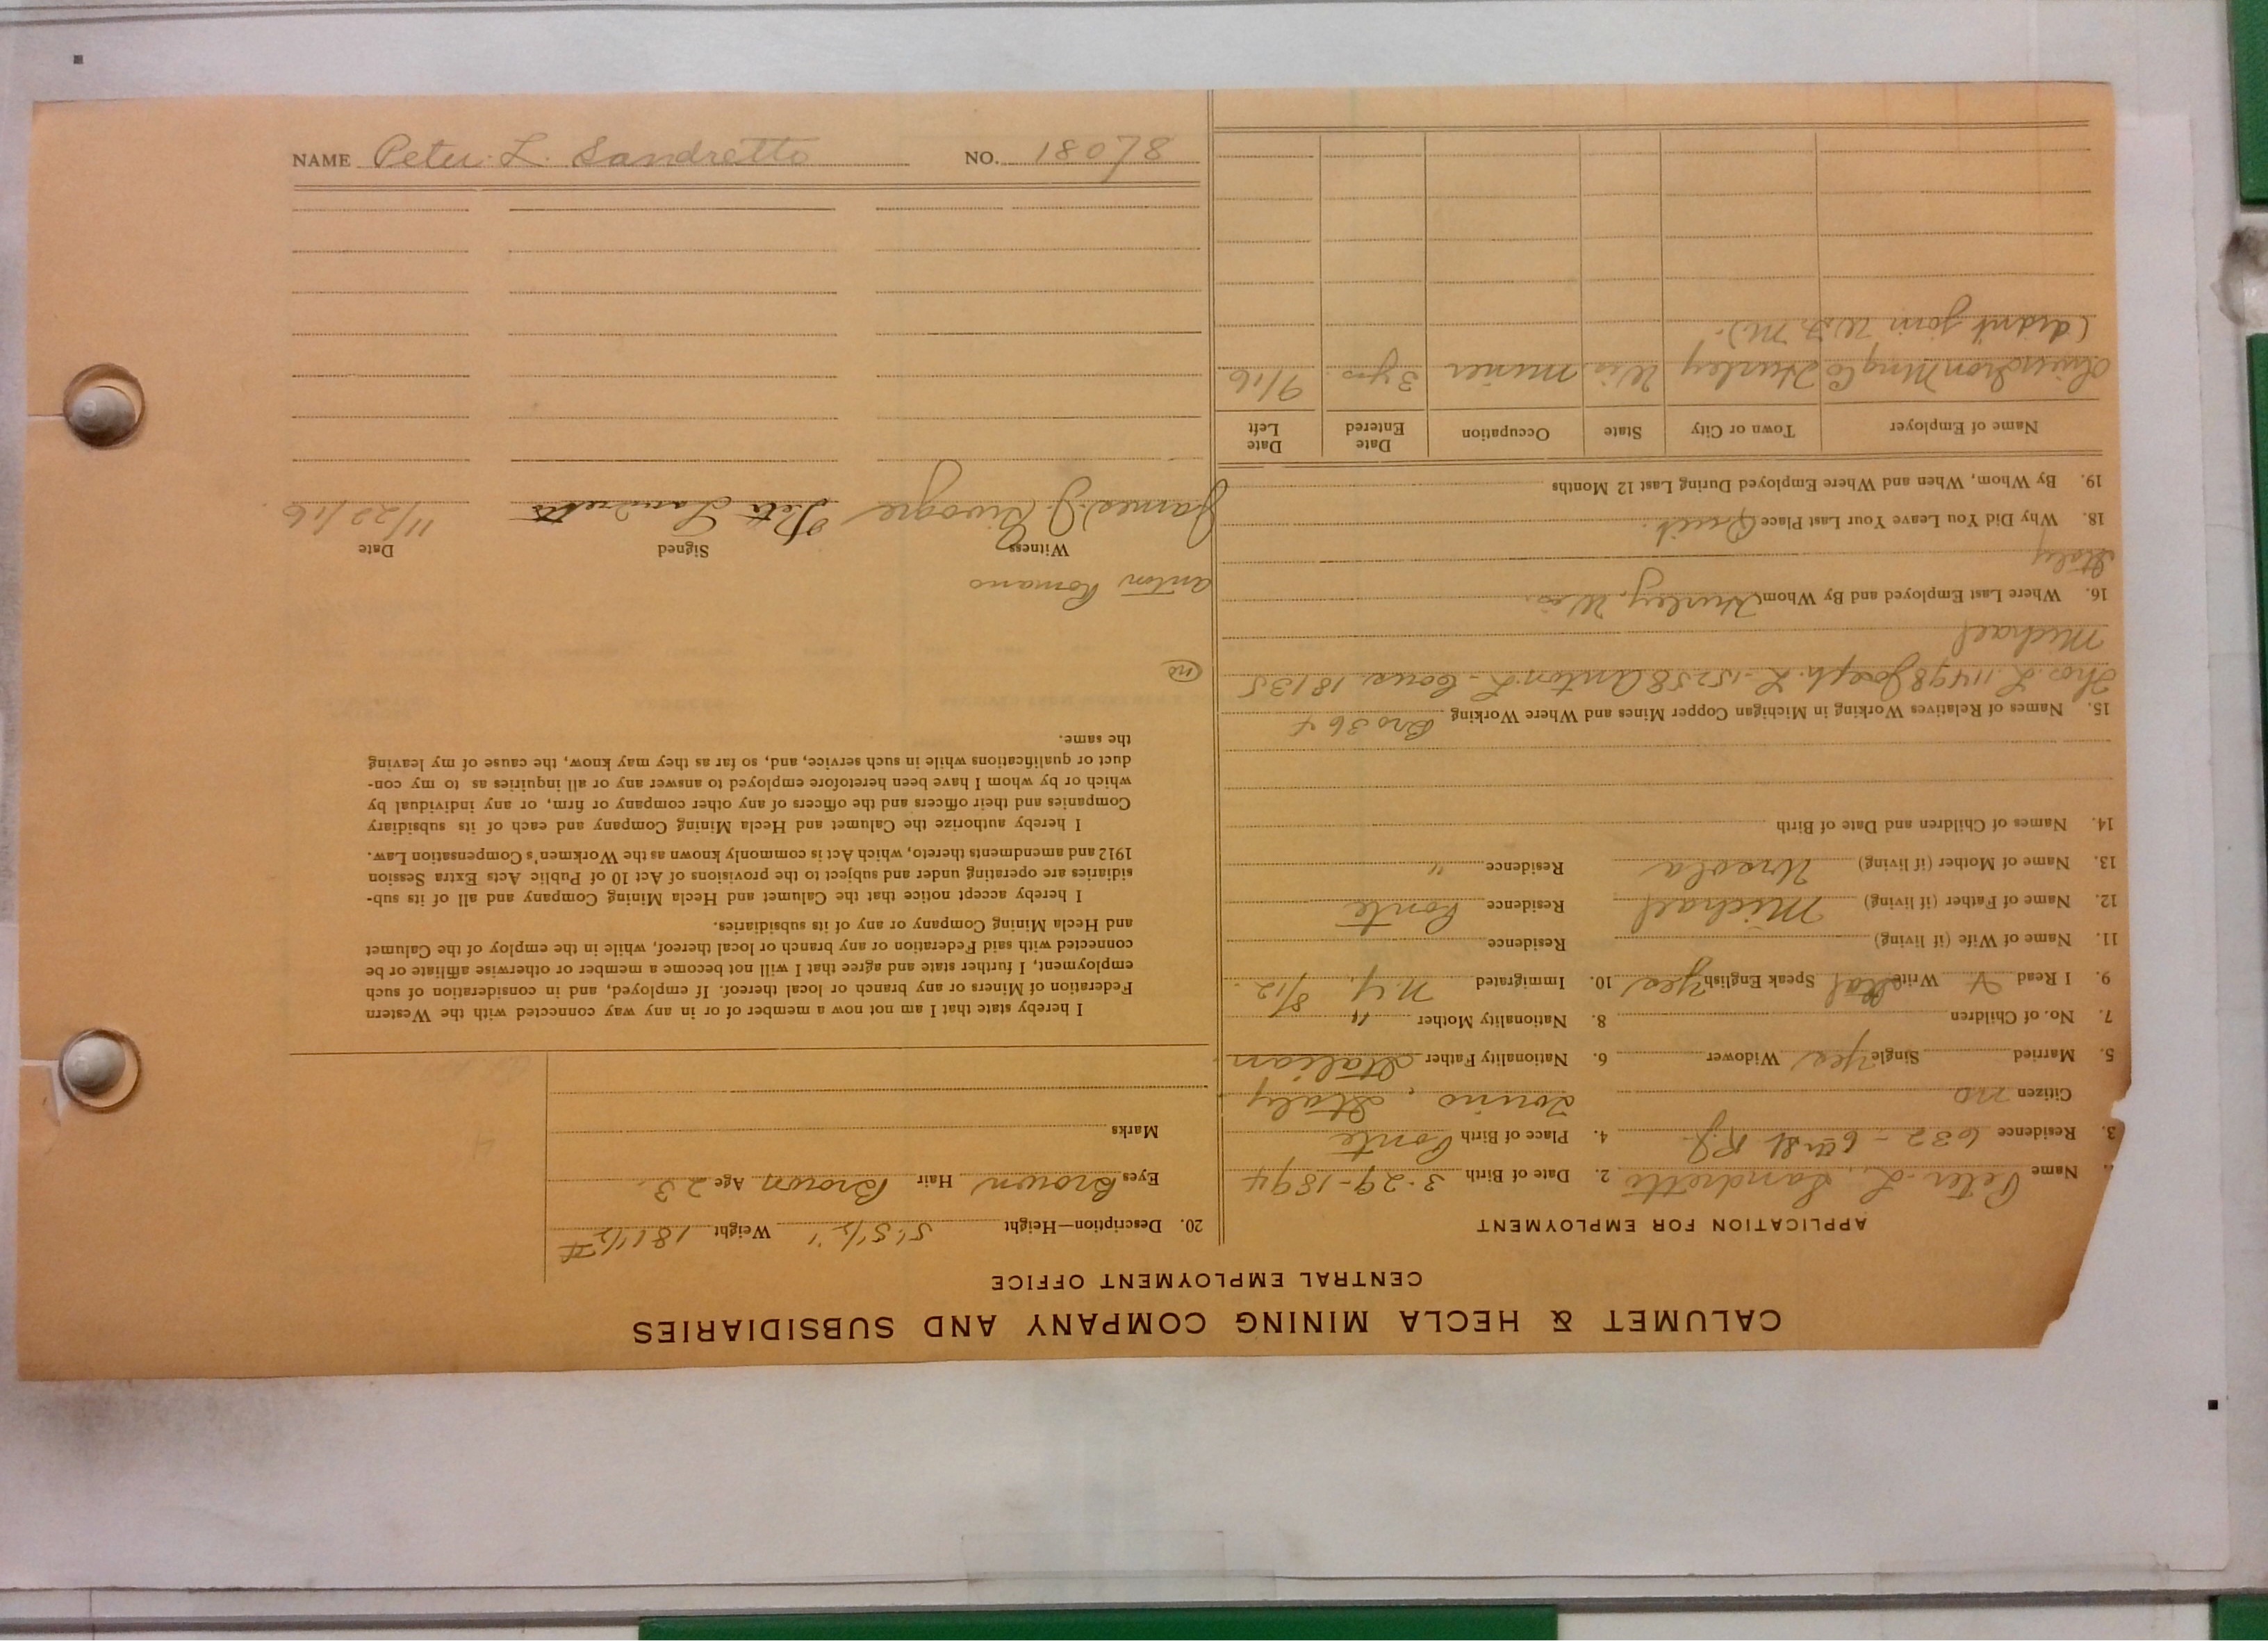 CALUMET & HECLA MINING COMPANY AND SUBSIDIARIES
CENTRAL EMPLOYMENT OFFICE
APPLICATION FOR EMPLOYMENT
Name Peter L. Sandretto 2. Date of Birth 3-29-1894
3. Residence 632-6th St R.J. 4. Place of Birth Ponte
Citizen no Torino, Italy
5. Married Single yes Widower 6. Nationality Father Italian
7. No. of Children 8. Nationality Mother "
9. I Read & Write Ital Speak English yes 10. Immigrated N.Y. 8/12
11. Name of Wife (if living) Residence
12. Name of Father (if living) Michael Residence Ponte
13. Name of Mother (if living) Ursola Residence "
14. Names of Children and Date of Birth
15. Names of Relatives Working in Michigan Copper Mines and Where Working Bro 364
Thos. L. 11498 Joseph. L-15258 Anton. L- Cous. 18135
Michael
16. Where Last Employed and By Whom Hurley, Wis.
Italy
18. Why Did You Leave Your Last Place Quit.
19. By Whom, When and Where Employed During Last 12 Months
Name of Employer Town or City State Occupation Date Entered Date Left
Iron Mng Co Hurley Wis. Miner 3 yrs 9/16
(didnt join W.F.M.).
20. Description—Height 5'.5 1/2" Weight 181 1/2 #
Eyes Brown Hair Brown Age 23.
Marks
I hereby state that I am not now a member of or in any way connected with the Western
Federation of Miners or any branch or local thereof. If employed, and in consideration of such
employment, I further state and agree that I will not become a member or otherwise affiliate or be
connected with said Federation or any branch or local thereof, while in the employ of the Calumet
and Hecla Mining Company or any of its subsidiaries.
I hereby accept notice that the Calumet and Hecla Mining Company and all of its sub-
sidiaries are operating under and subject to the provisions of Act 10 of Public Acts Extra Session
1912 and amendments thereto, which Act is commonly known as the Workmen's Compensation Law.
I hereby authorize the Calumet and Hecla Mining Company and each of its subsidiary
Companies and their officers and the officers of any other company or firm, or any individual by
which or by whom I have been heretofore employed to answer any or all inquiries as to my con-
duct or qualifications while in such service, and, so far as they may know, the cause of my leaving
the same.
no
Anton Romano
Witness Signed Date
James J. Peter Sandretto 11/22/16
NAME Peter L. Sandretto NO. 18078